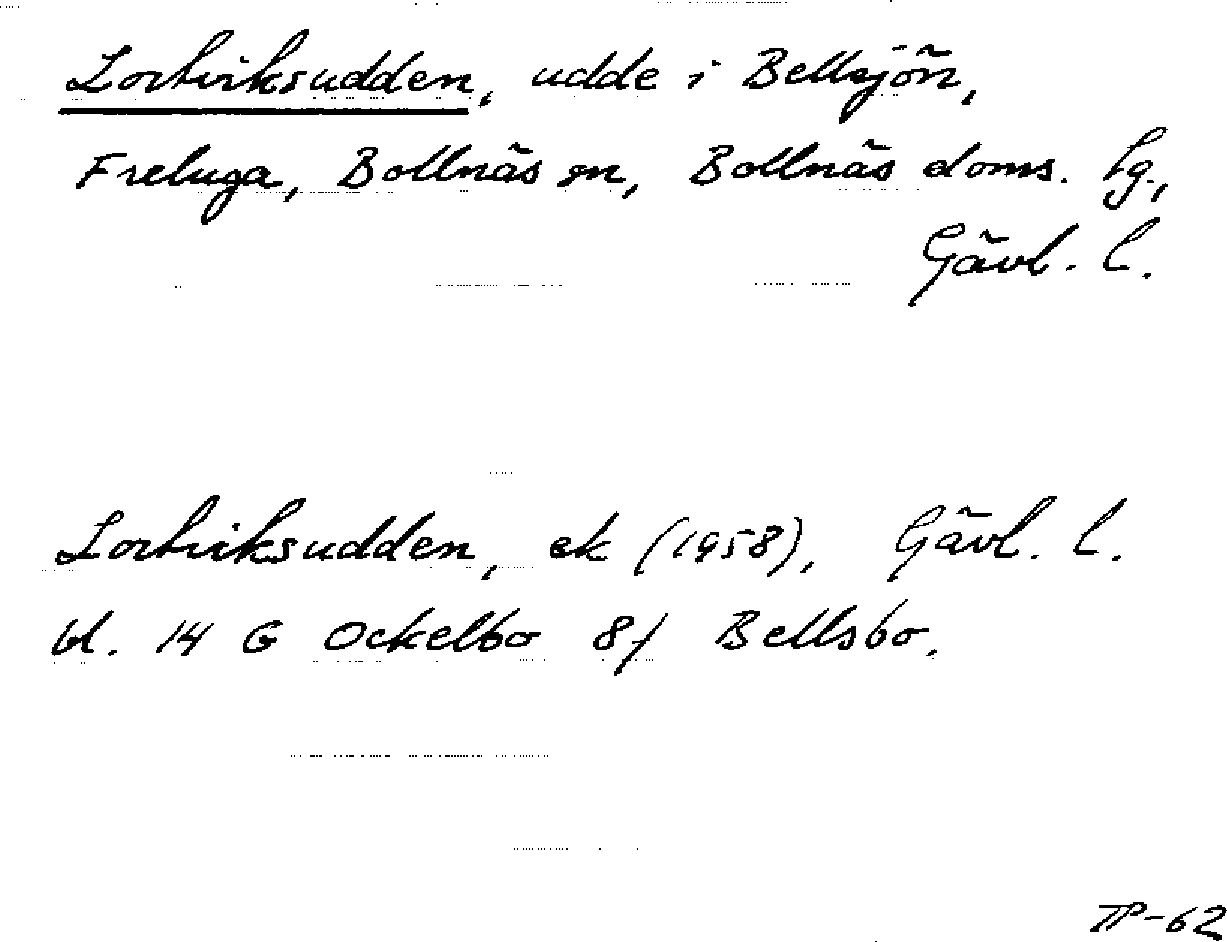 Lortviksudden, udde i Bellsjön,
Freluga, Bollnäs sn, Bollnäs doms. lg.,
Gävl. l.
Lortviksudden, ek (1958), Gävl. l.
bl. 14 G Ockelbo 8f Bellsbo.
TP-62